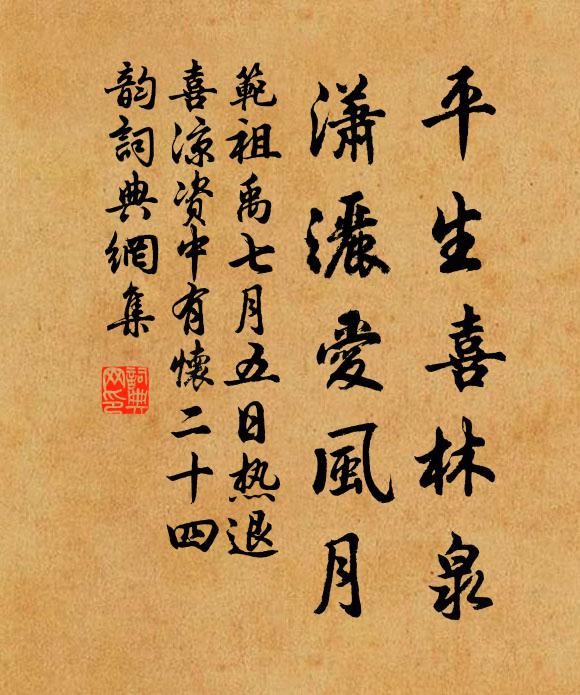 平生喜林泉
瀟灑愛風月
範祖禹七月五日热退
喜涼资中有懷二十四
韵詞典網集
詞典
网印